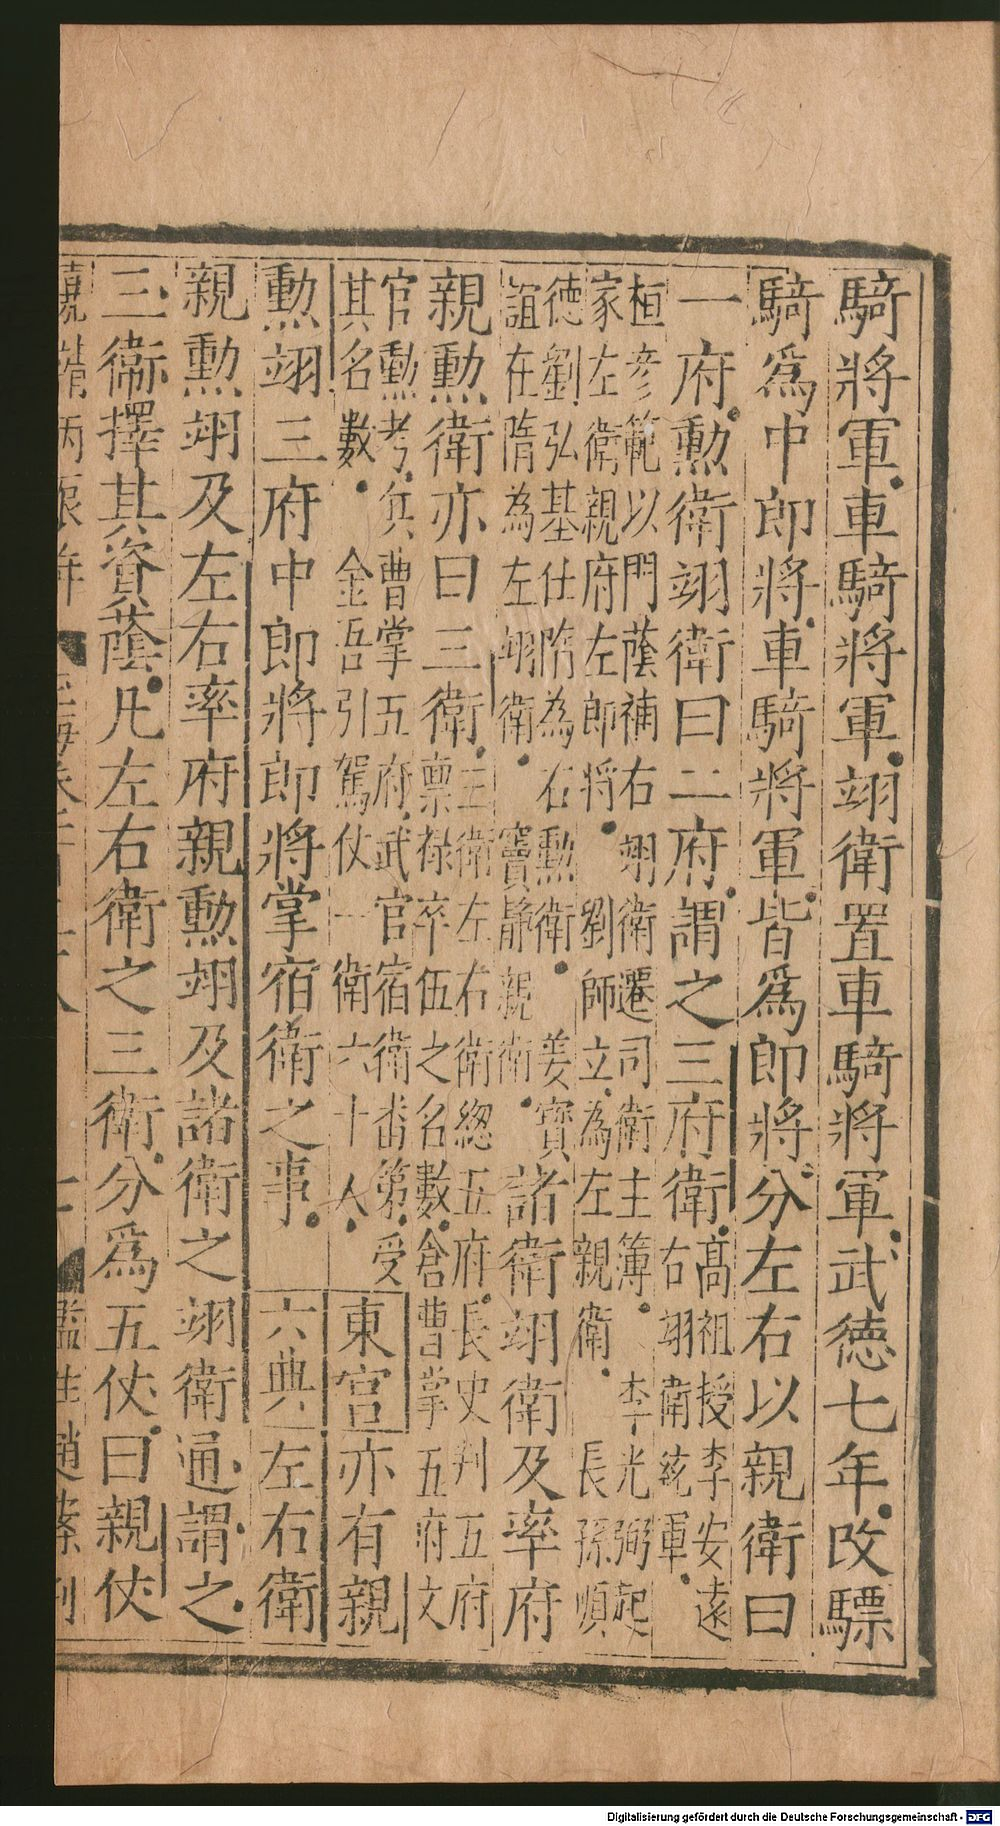 騎將軍車騎將軍翊衛置車騎將軍武德七年改驃
騎爲中郎將車騎將軍皆爲郎將分左右以親衛曰
一府勳衛翊衛曰二府謂之三府衛
高祖授李安遠
右翊衛統軍
桓彥範以門蔭補右翊衛遷司衛主簿 李光弼起
家左衛親府左郎將 劉師立為左親衛 長孫順
德劉弘基仕隋為右勳衛 姜寶
誼在隋為左翊衛 竇靜親衛
諸衛翊衛及率府
親勳衛亦曰三衛
三衛左右衛總五府長史判五府
稟祿卒伍之名數倉曹掌五府文
官勳考兵曹掌五府武官宿衛番第受
其名數 金吾引駕仗一衛六十人
東宮亦有親
勳翊三府中郎將郎將掌宿衛之事 六典左右衛
親勳翊及左右率府親勳翊及諸衛之翊衛通謂之
三衛擇其資蔭凡左右衛之三衛分爲五仗曰親仗
嘉靖丙辰年
監生趙
Digitalisierung gefördert durch die Deutsche Forschungsgemeinschaft - DFG